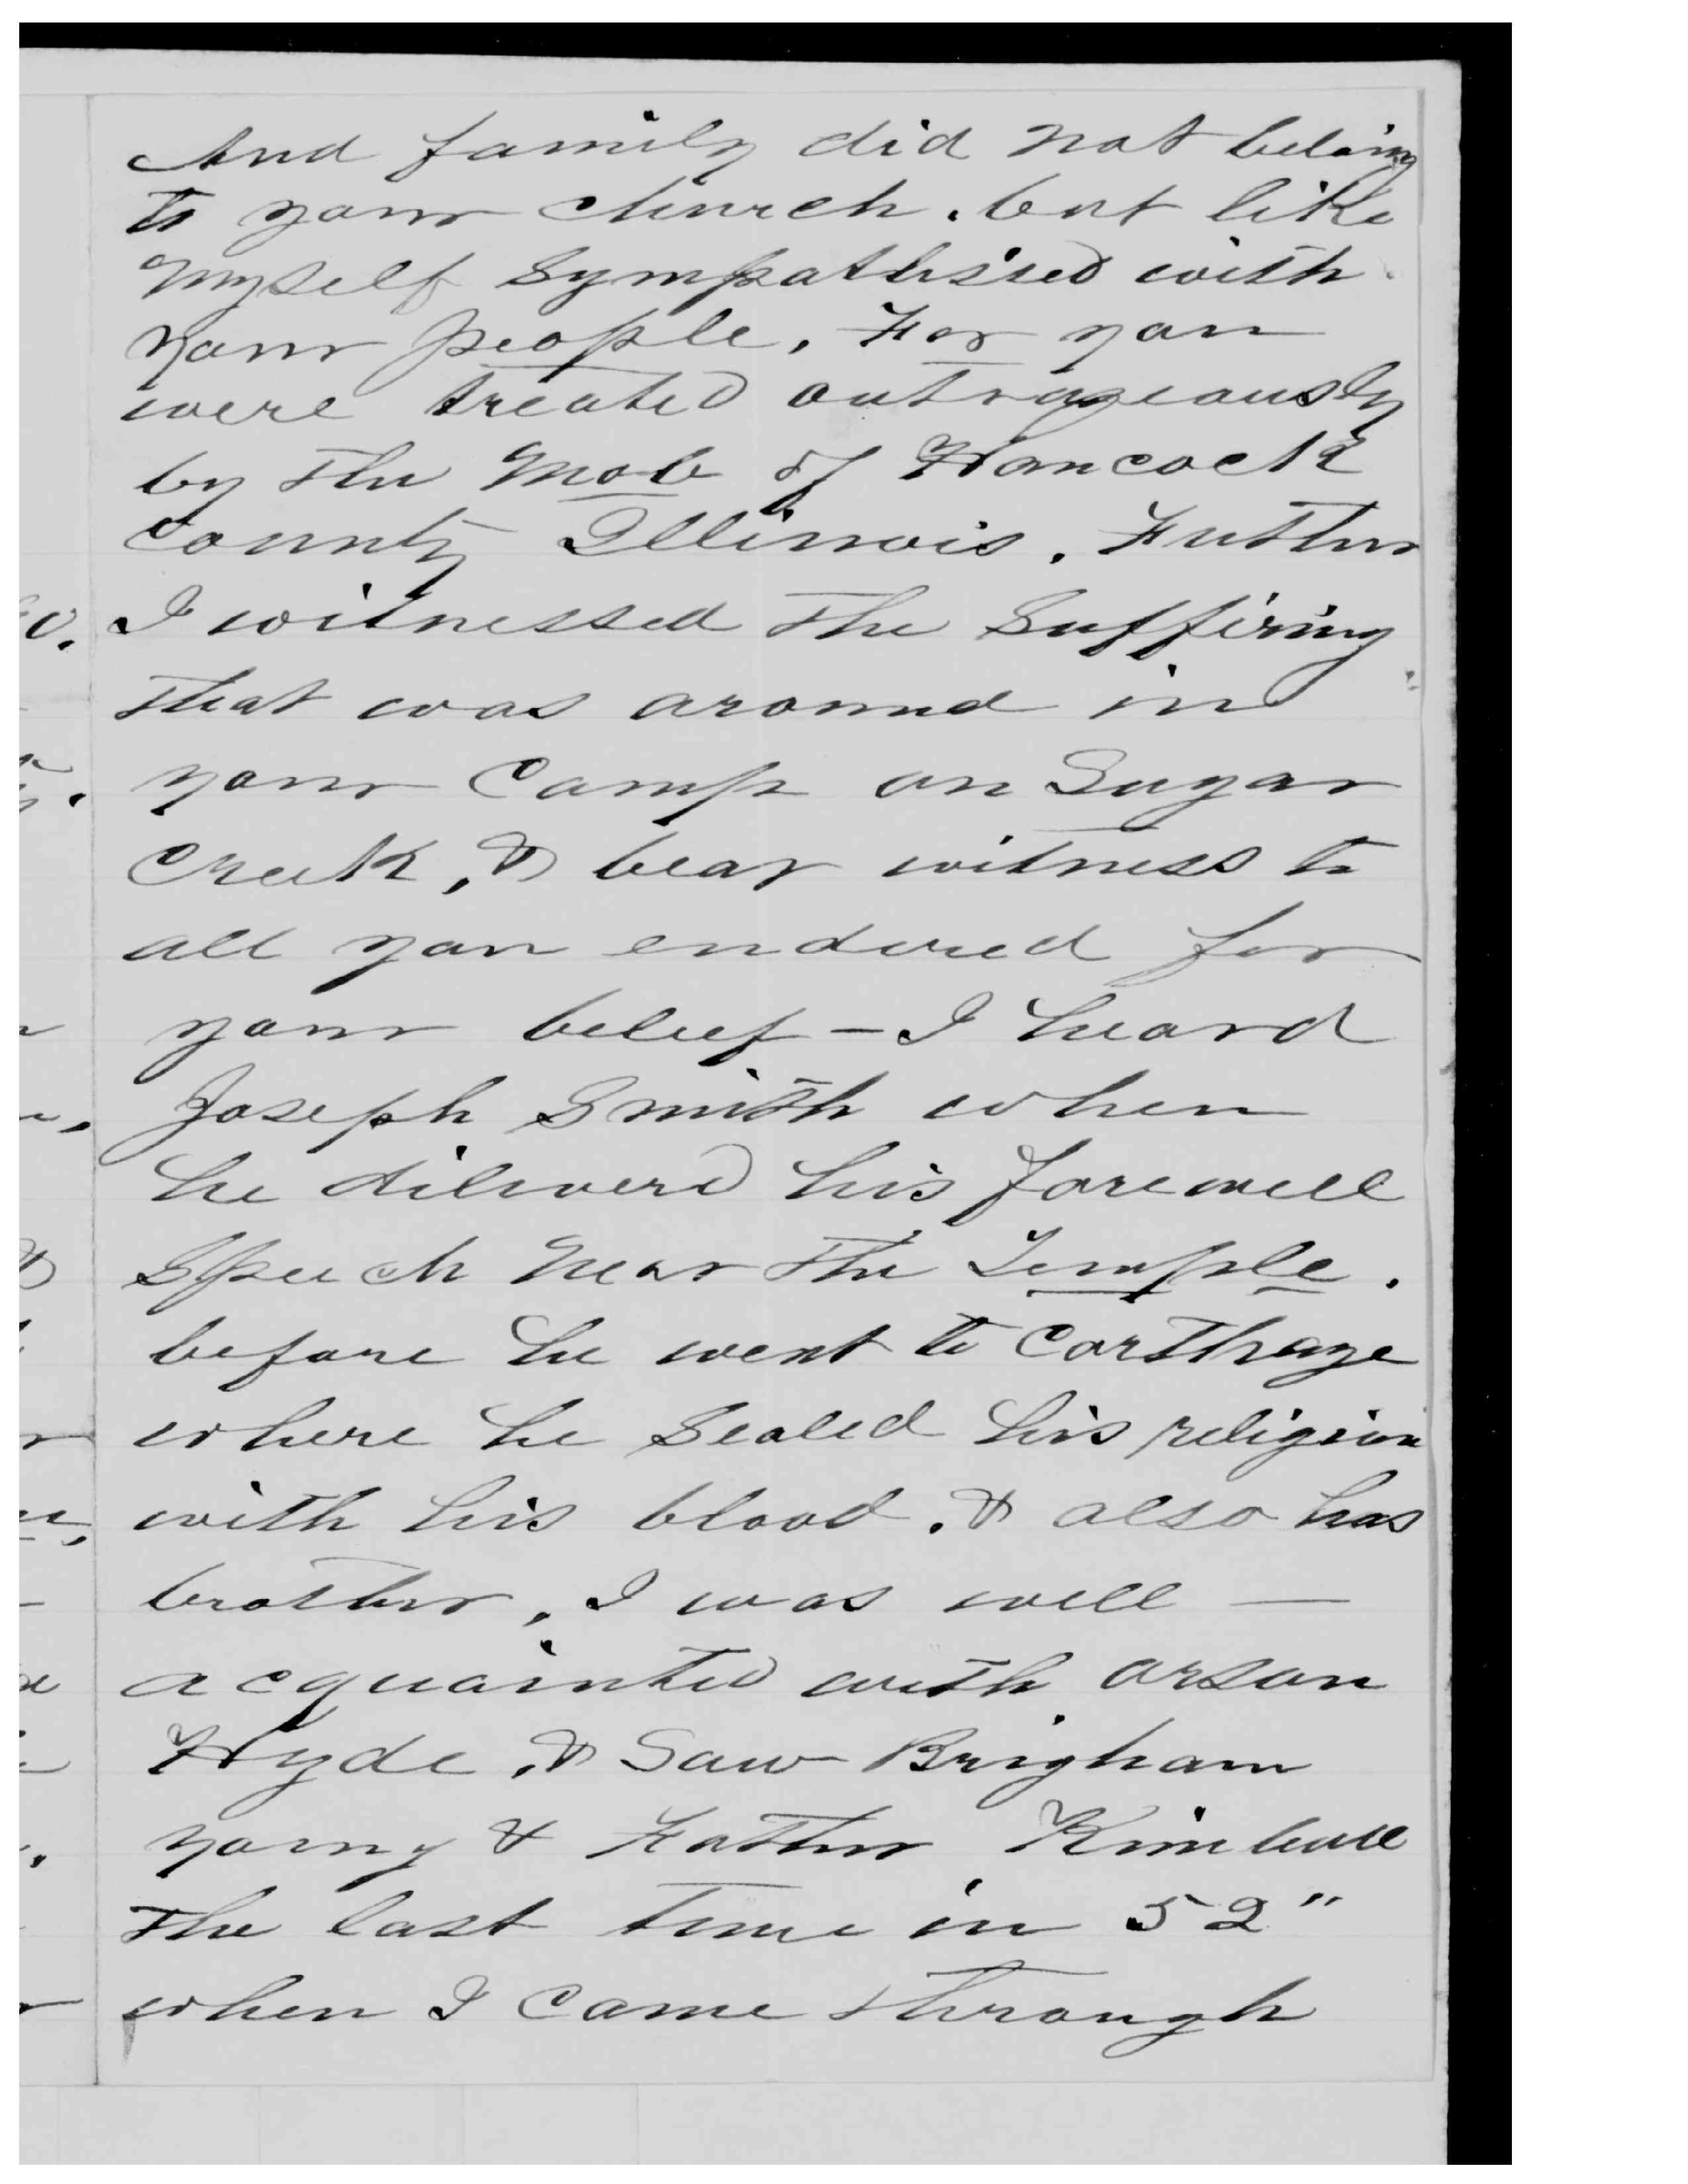 And family did not belong
to your church. but like
myself Sympathised with
your people, For you
were treated outrageously
by the Mob of Hancock
County Illinois. Futher
I witnessed the Suffering
that was around in
your Camp on Sugar
Creek, & bear witness to
all you endured for
your belief - I heard
Joseph Smith when
he dilivered his farewell
Speech Near the Temple.
before he went to Carthage
where he Sealed his religion
with his blood. & also his
brother, I was well —
acquainted with Orson
Hyde, & Saw Brigham
Young & Father Kimball
the last time in 52"
when I Came through